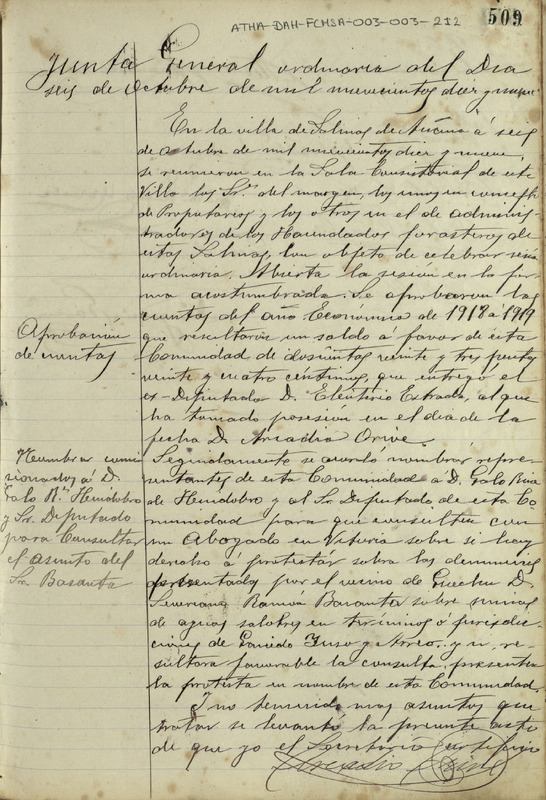 ATHA-DAH-FCHSA-003-003-212
509
Junta General ordinaria del Dia
seis de Octubre de mil nuevecientos diez y nueve
En la villa de Salinas de Añana á seis
de octubre de mil nuevecientos diez y nueve,
se reunieron en la Sala Consistorial de esta
Villa los Sres. del margen, los unos en concepto
de Propietarios y los otros en el de adminis-
tradores de los Hacendados forasteros de
estas Salinas, con objeto de celebrar sesion
ordinaria. Abierta la sesion en la for-
ma acostumbrada. Se aprobaron las
Aprobacion
de cuentas
cuentas del año Economico de 1918 á 1919
que resultaron un saldo á favor de esta
Comunidad de doscientos veinte y tres pesetas
veinte y cuatro centimos, que entregó el
ex-Diputado D. Eleuterio Estrada, al que
ha tomado posesion en el dia de la
fecha D. Arcadio Orive.
Nombrar comi
sionados á D.
Galo Rz. Heudobro
y Sr. Diputado
para Consultar
el asunto del
Sr. Basanta
Seguidamente se acordó nombrar repre-
sentantes de esta Comunidad á D. Galo Ruiz
de Heudobro y al Sr. Diputado de esta Co
munidad para que consulten con
un Abogado en Vitoria sobre si hay
derecho á protestár sobre las denuncias
presentadas por el vecino de D.
Severiano Ramón Basanta sobre minas
de aguas salobres en terminos ó jurisdic-
ciones de Paniedo Yuso y Arreo, y si re-
sultara favorable la consulta, presentar
la protesta en nombre de esta Comunidad.
Y no teniendo mas asuntos que
tratar se levantó la presente acta
de que yo el Secretario certifico
Arcadio Orive